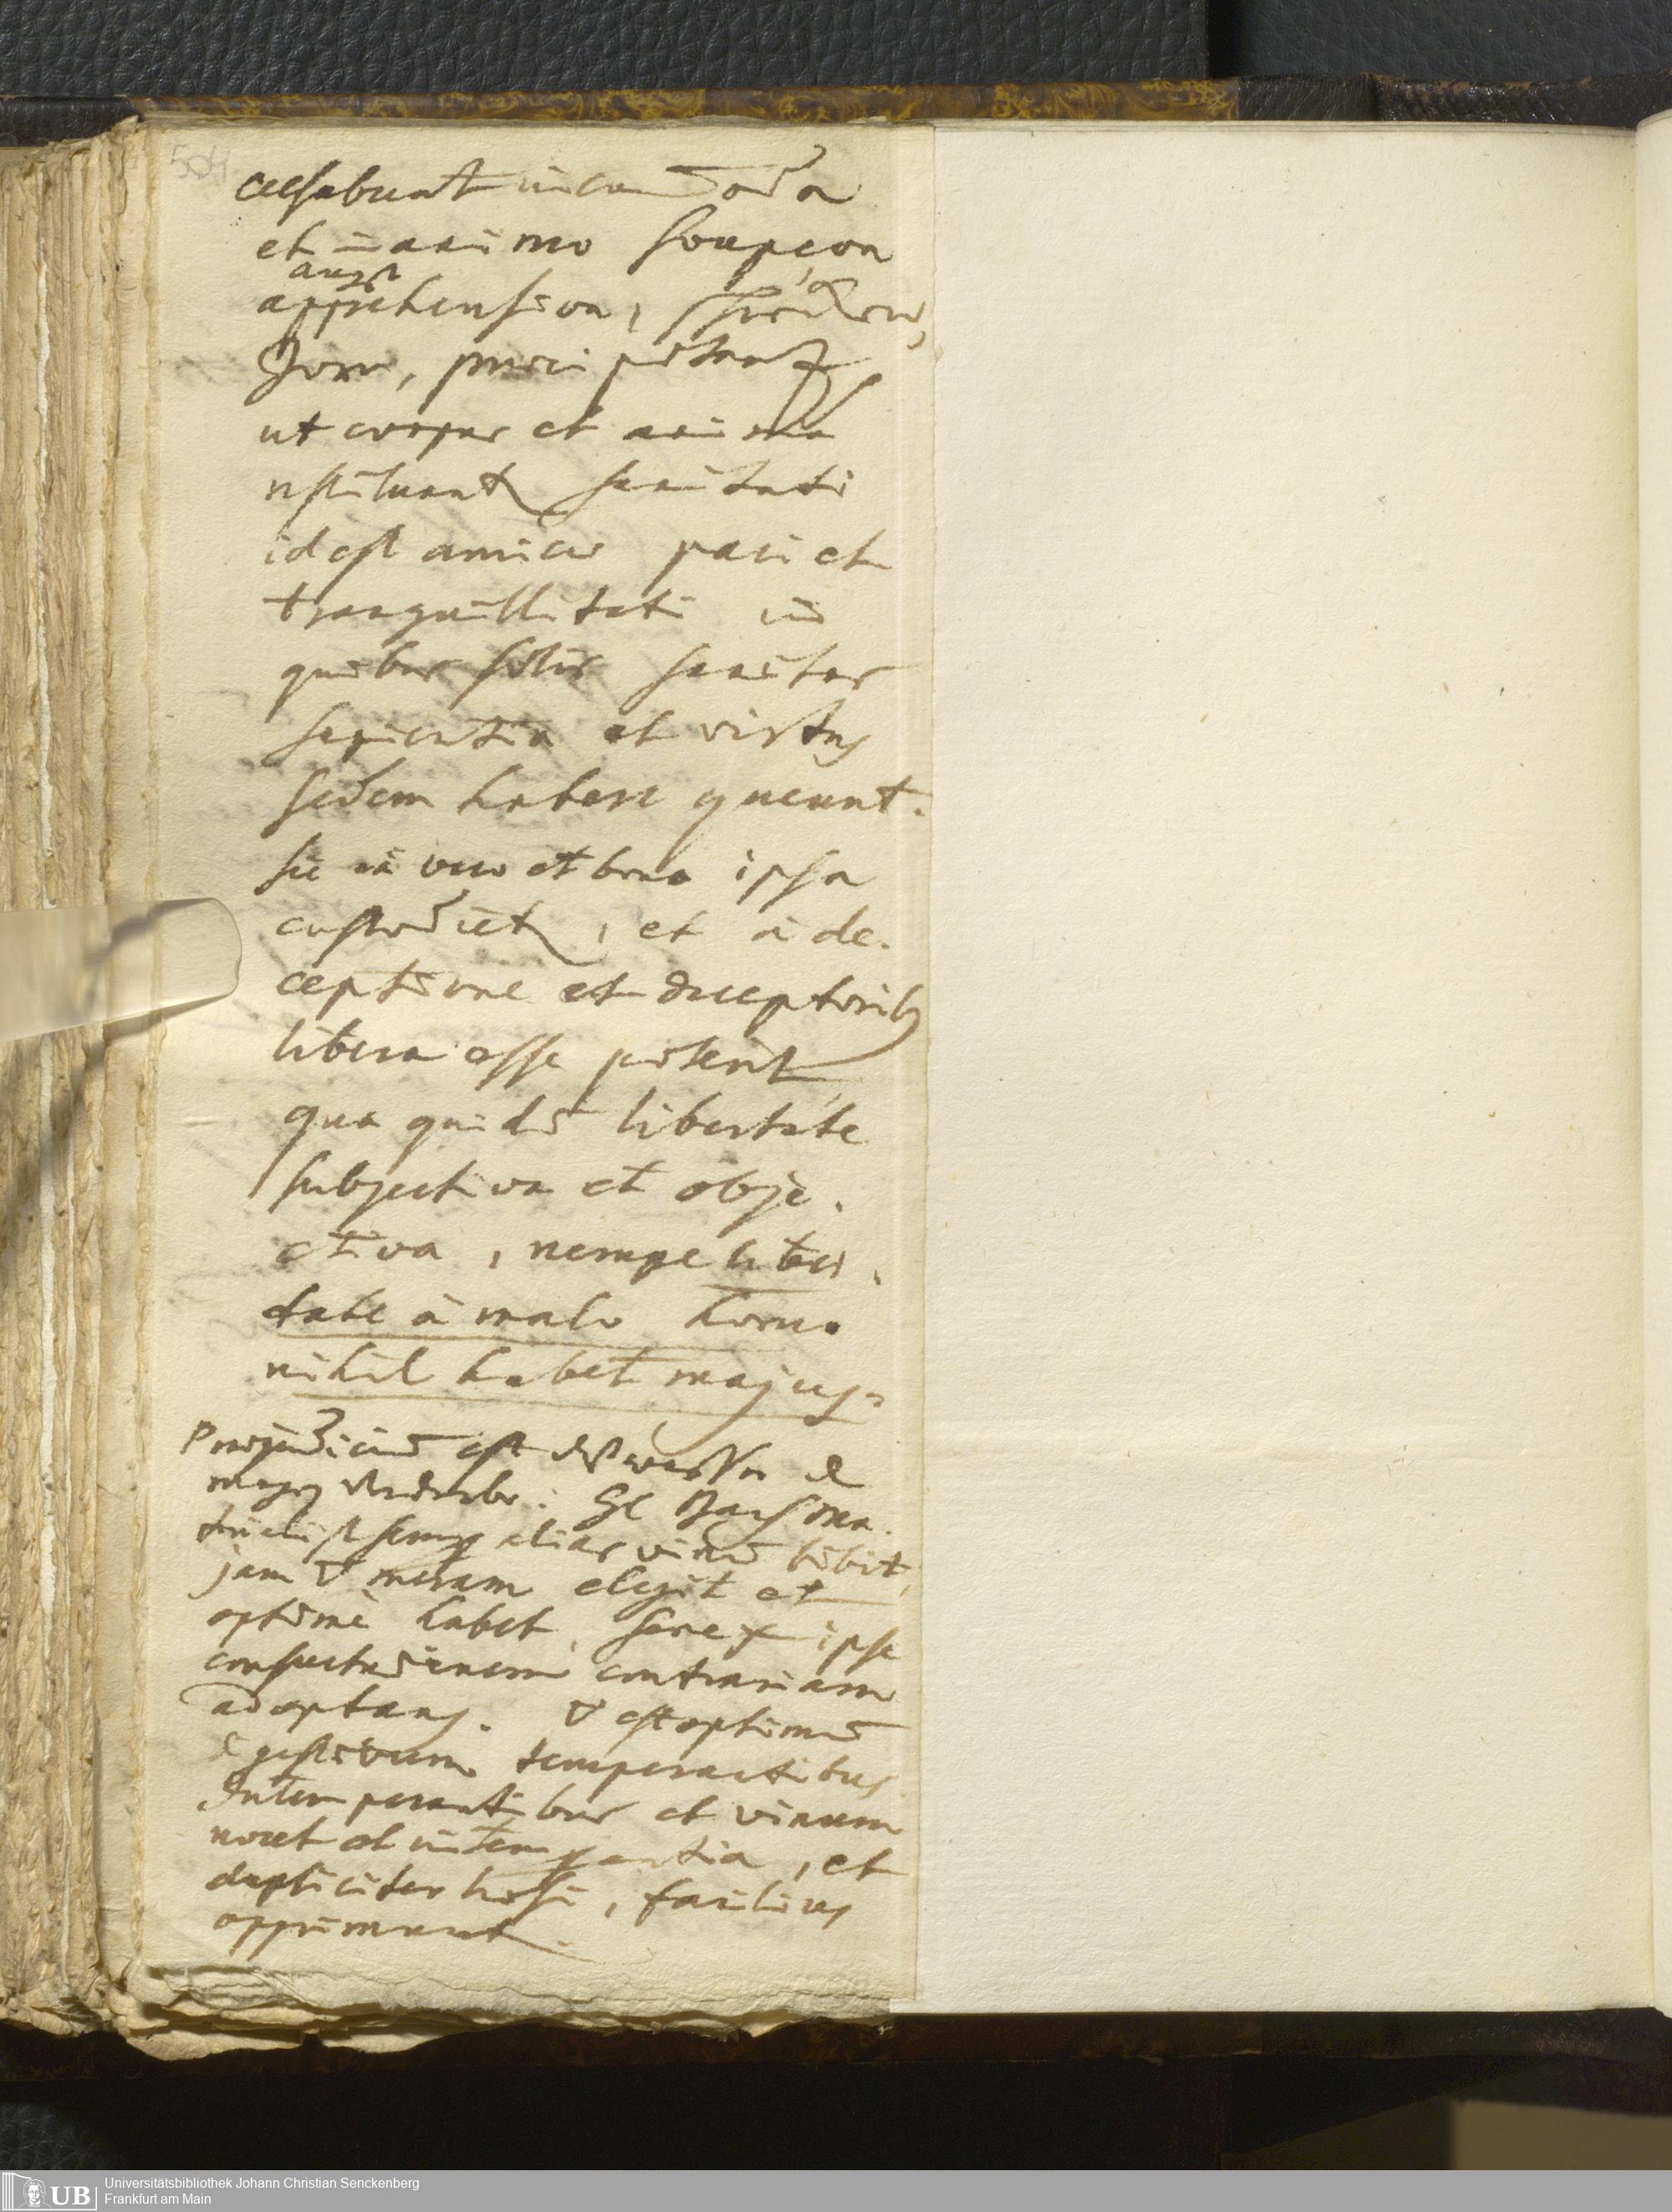 504
cessabunt incommoda
et in animo soupçon
angst
apprehension, schrecken,
Zorn, praecipitanz
ut corpus et anima
restituantur sanitati
id est amicae paci et
tranquillitati in
quibus solis sanitas
sapientia et virtus
sedem habere queunt.
sic in vero et bono ipsa
custodietur, et à de-
ceptione et deceptoribus
libera esse poterit
qua quidem libertate
subjectiva et obje-
ctiva, nempe liber-
tate à malo homo
nihil habet majus.
Praejudicium est daß wasser d
magen Hl
semper alias vinum bibit,
jam ▽ meram elegit et
optime habet, senex ipse
consuetudinem contrariam
adoptans. ▽ est optimum
digestivum temperantibus
Intemperantibus et vinum
nocet et intemperantia, et
dupliciter laesi, facilius
opprimuntur.
Universitätsbibliothek Johann Christian Senckenberg
Frankfurt am Main
UB